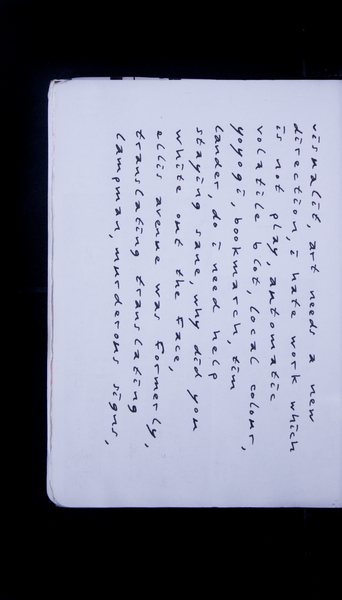 visualit, art needs a new
direction, i hate work which
is not play, automatic
volatile blot, local colour,
yoyogi, bookmarch, tim
lander, do i need help
staying sane, why did you
white out the face,
ellis avenue was formerly,
translating translating
lampman, murderous signs,